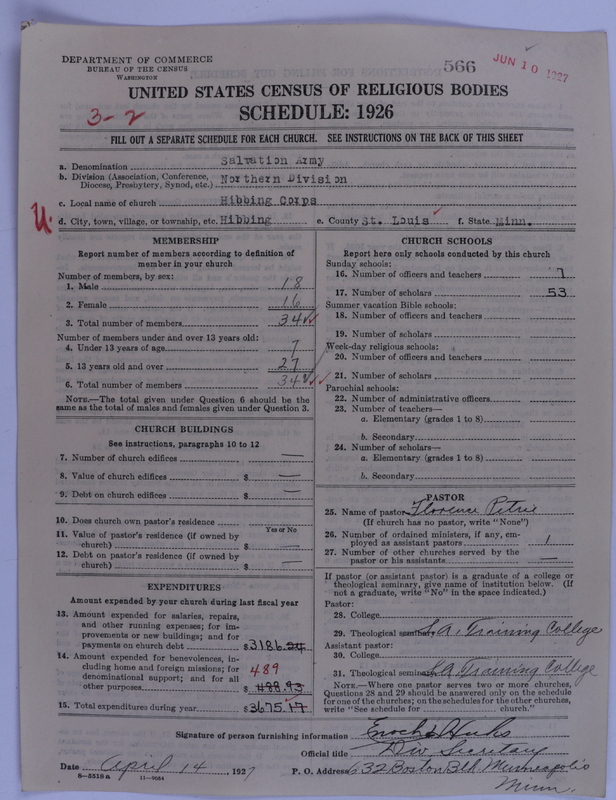 DEPARTMENT OF COMMERCE
BUREAU OF THE CENSUS
WASHINGTON
566
JUN 10 1927
UNITED STATES CENSUS OF RELIGIOUS BODIES
SCHEDULE: 1926
3-2
FILL OUT A SEPARATE SCHEDULE FOR EACH CHURCH. SEE INSTRUCTIONS ON THE BACK OF THIS SHEET
a. Denomination Salvation Army
b. Division (Association, Conference, Diocese, Presbytery, Synod, etc.) Northern Division
c. Local name of church Hibbing Corps
U.
d. City, town, village, or township, etc. Hibbing e. County St. Louis f. State Minn.
MEMBERSHIP
Report number of members according to definition of
member in your church
Number of members, by sex:
1. Male 18
2. Female 16
3. Total number of members 34
Number of members under and over 13 years old:
4. Under 13 years of age 7
5. 13 years old and over 27
6. Total number of members 34
NOTE.—The total given under Question 6 should be the
same as the total of males and females given under Question 3.
CHURCH BUILDINGS
See instructions, paragraphs 10 to 12
7. Number of church edifices —
8. Value of church edifices $ —
9. Debt on church edifices $ —
10. Does church own pastor's residence
Yes or No
11. Value of pastor's residence (if owned by
church) $ —
12. Debt on pastor's residence (if owned by
church) $ —
EXPENDITURES
Amount expended by your church during last fiscal year
13. Amount expended for salaries, repairs,
and other running expenses; for im-
provements or new buildings; and for
payments on church debt $ 3186.24
14. Amount expended for benevolences, in-
cluding home and foreign missions; for
denominational support; and for all
other purposes 489 $ 488.93
15. Total expenditures during year $ 3675.17
CHURCH SCHOOLS
Report here only schools conducted by this church
Sunday schools:
16. Number of officers and teachers 7
17. Number of scholars 53
Summer vacation Bible schools:
18. Number of officers and teachers
19. Number of scholars
Week-day religious schools:
20. Number of officers and teachers
21. Number of scholars
Parochial schools:
22. Number of administrative officers
23. Number of teachers—
a. Elementary (grades 1 to 8)
b. Secondary
24. Number of scholars—
a. Elementary (grades 1 to 8)
b. Secondary
PASTOR
25. Name of pastor Florence Petrie
(If church has no pastor, write "None")
26. Number of ordained ministers, if any, em-
ployed as assistant pastors 1
27. Number of other churches served by the
pastor or his assistants —
If pastor (or assistant pastor) is a graduate of a college or
theological seminary, give name of institution below. (If
not a graduate, write "No" in the space indicated.)
Pastor:
28. College
29. Theological seminary S.A. Training College
Assistant pastor:
30. College
31. Theological seminary S.A. Training College
NOTE.—Where one pastor serves two or more churches,
Questions 28 and 29 should be answered only on the schedule
for one of the churches; on the schedules for the other churches,
write "See schedule for church."
Signature of person furnishing information Enoch Hinks
Official title Div Secretary
Date April 14, 1927 P. O. Address 632 Boston Blk Minneapolis
Minn.
8—5518 a 11—9054